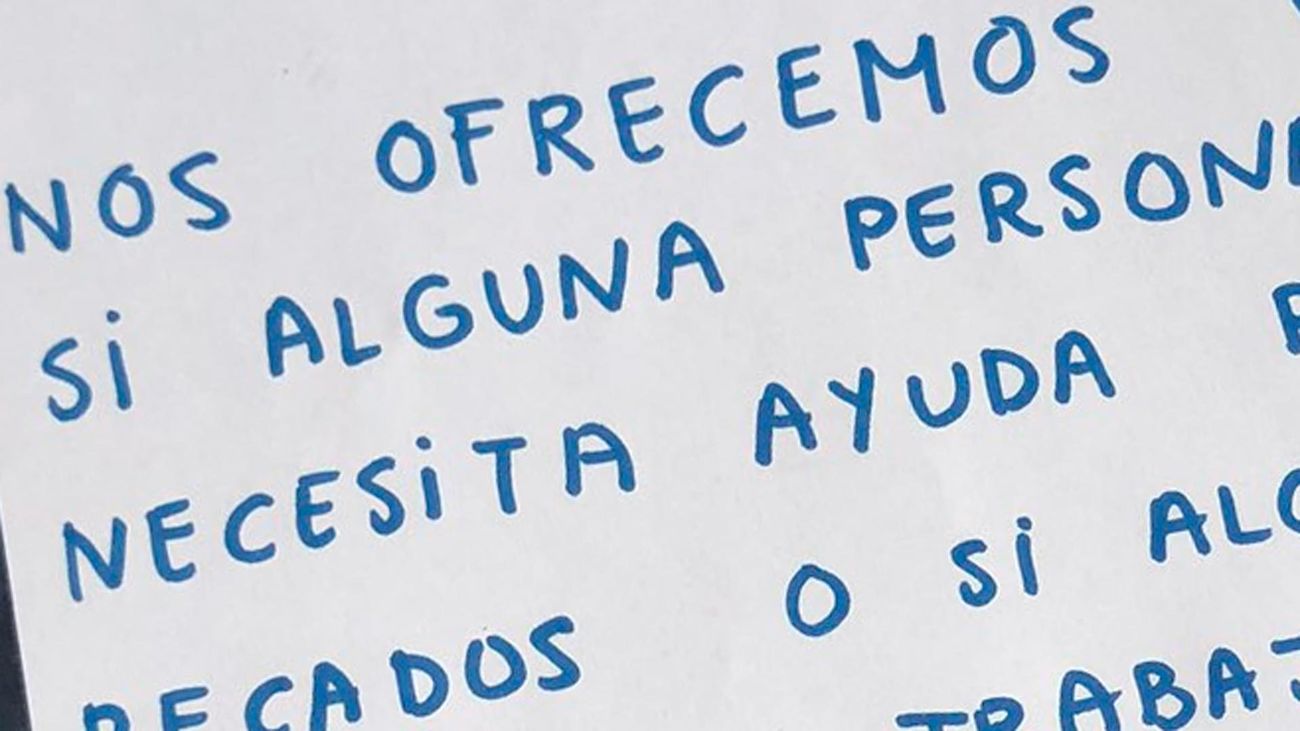 NOS OFRECEMOS
Si ALGUNA PERSON
NECESiTA AYUDA
RECADOS O Si ALG
TRABAJ